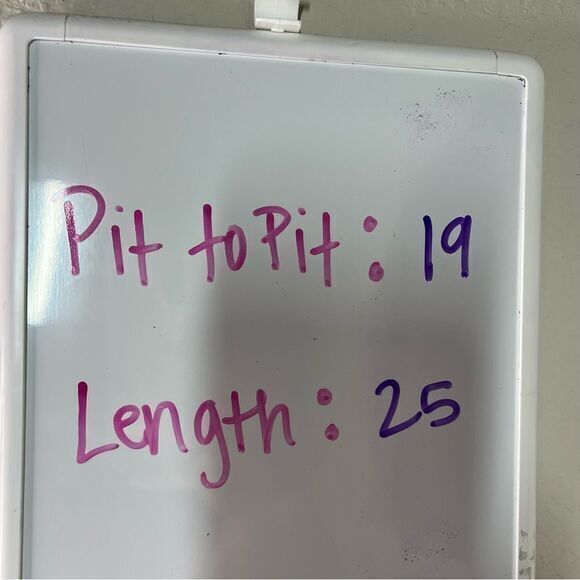 Pit to Pit: 19
Length: 25